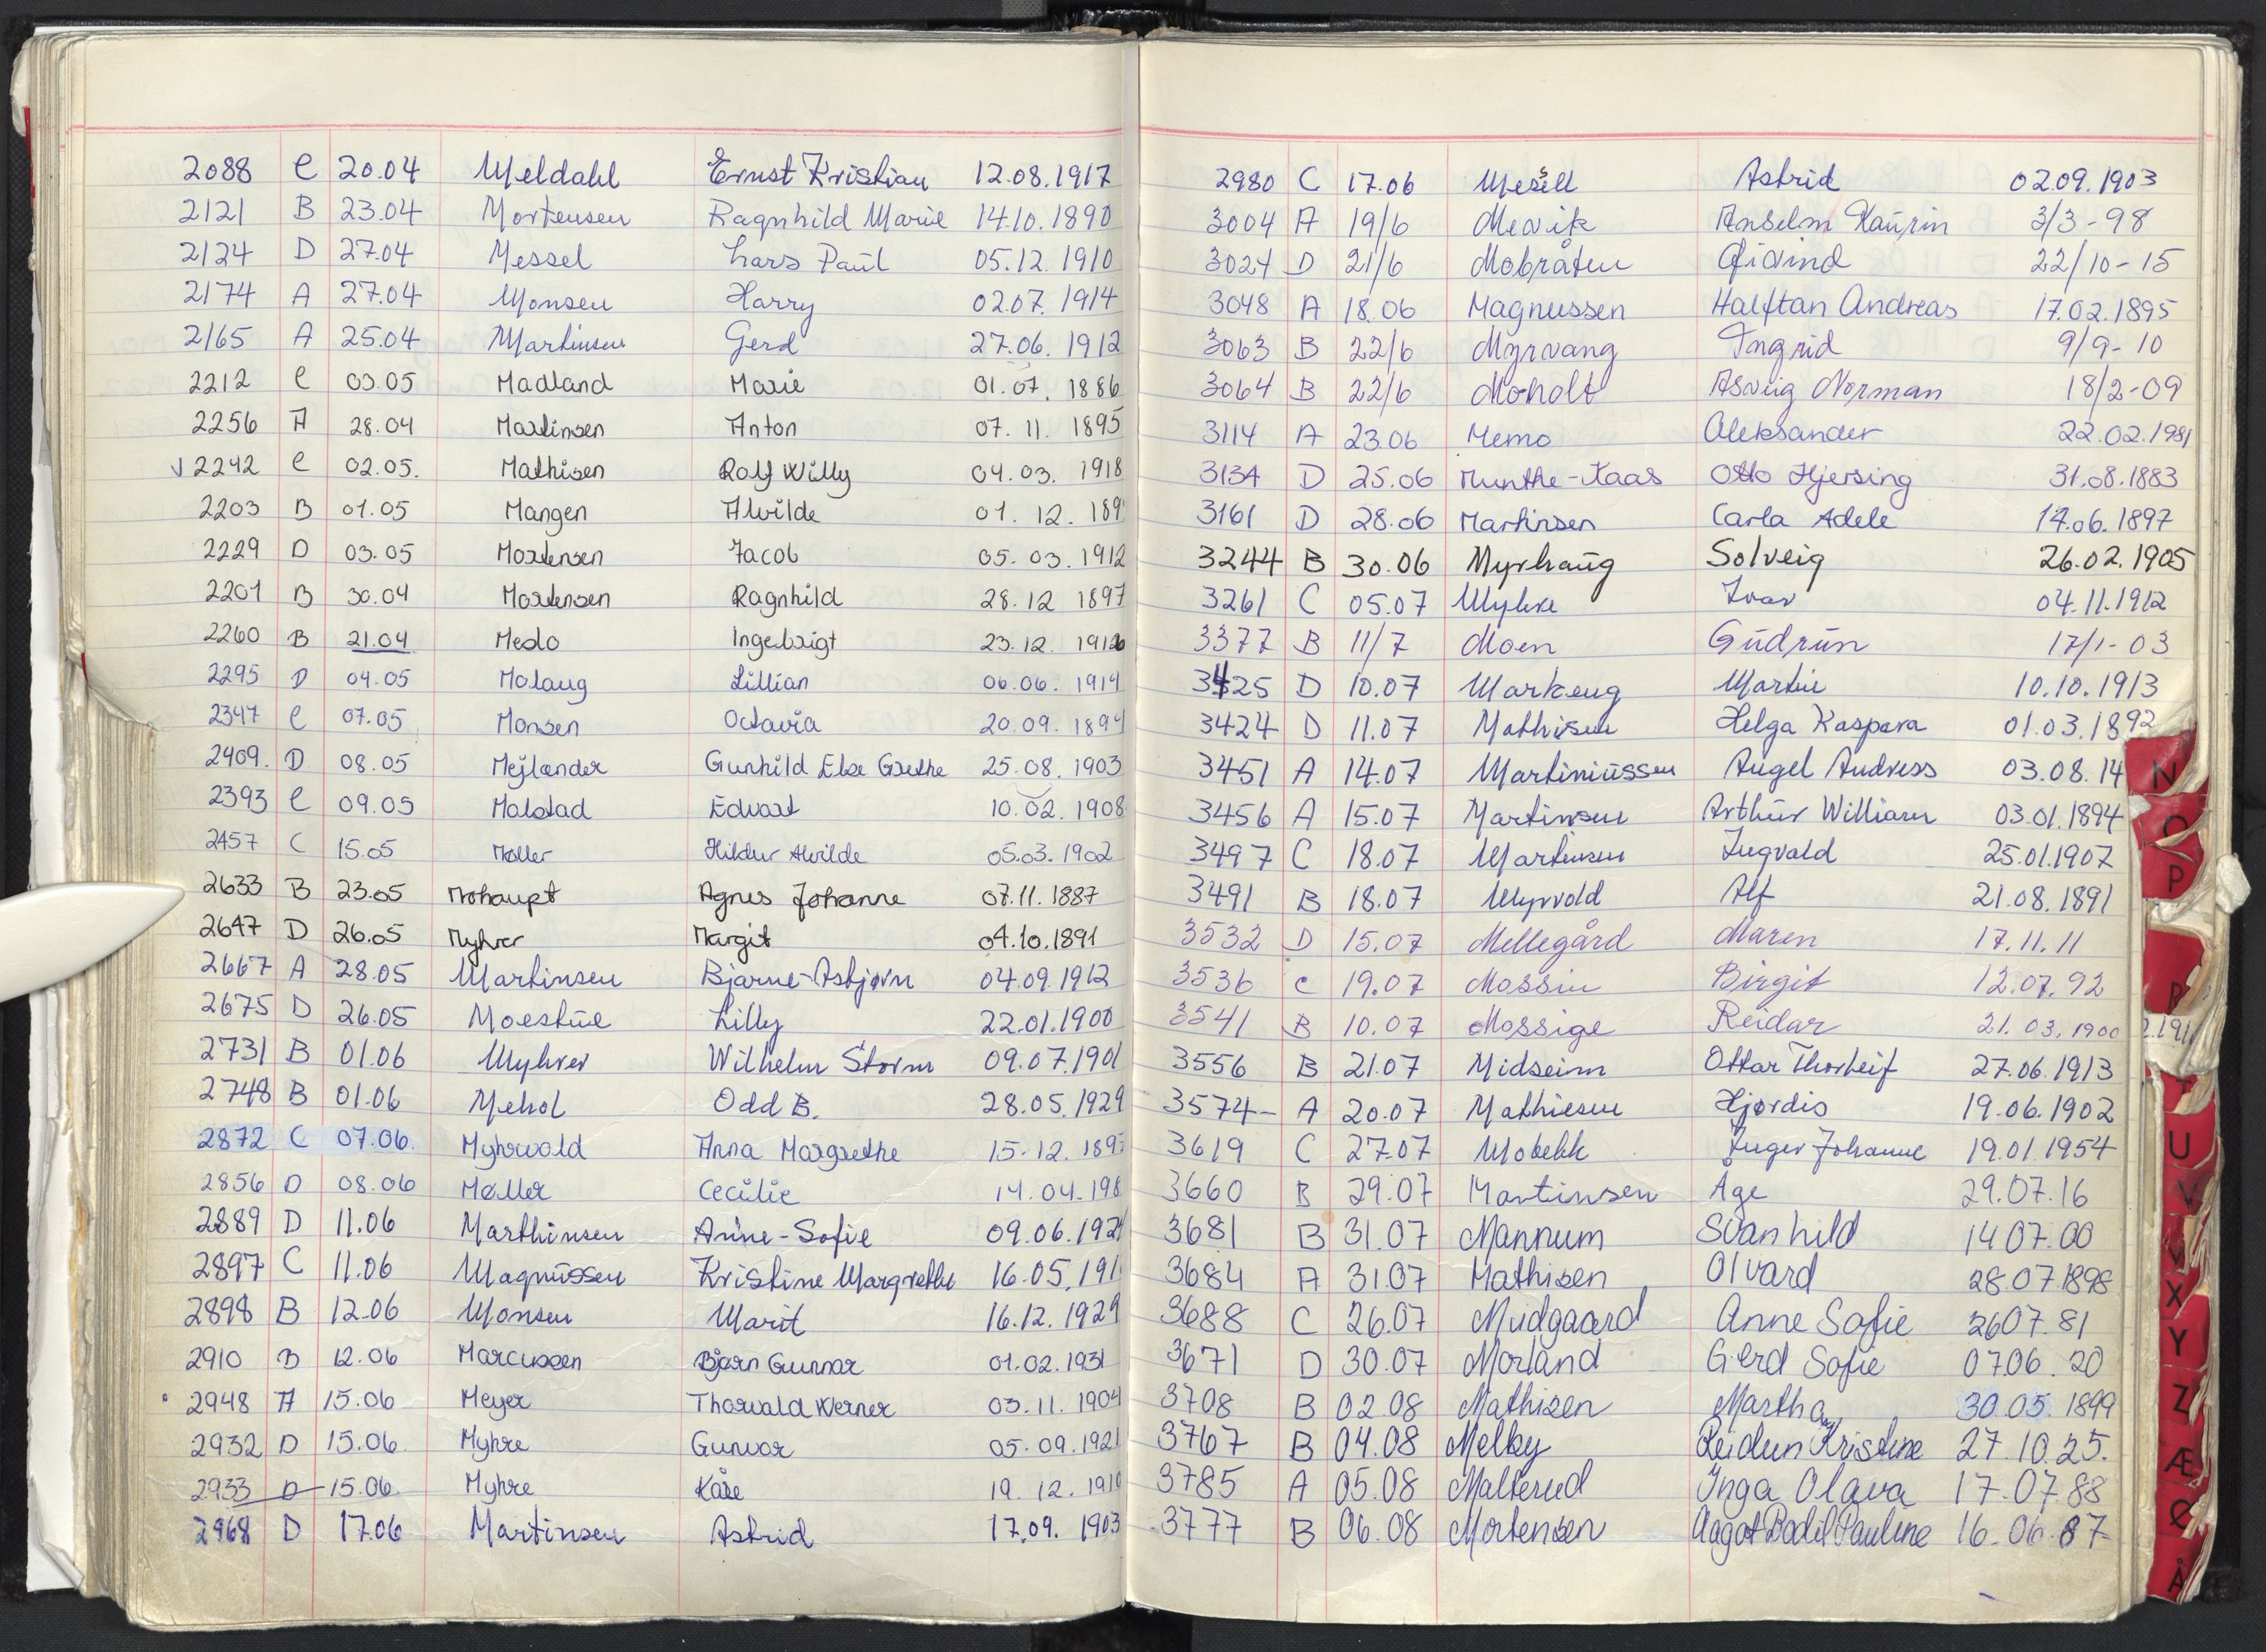 2088 C 20.04 Meldahl Ernst Kristian 12.08.1917
2121 B 23.04 Mortensen Ragnhild Marie 14.10.1890
2124 D 27.04 Messel Lars Paul 05.12.1910
2174 A 27.04 Monsen Harry 02.07.1914
2165 A 25.04 Martinsen Gerd 27.06.1912
2212 C 03.05 Madland Marie 01.07.1886
2256 A 28.04 Martinsen Anton 07.11.1895
√ 2242 C 02.05. Mathisen Rolf Willy 04.03.1918
2203 B 01.05 Mangen Alvilde 01.12.189
2229 D 03.05 Mortensen Jacob 05.03.1912
2201 B 30.04 Mortensen Ragnhild 28.12 1897
2260 B 21.04 Meslo Ingebrigt 23.12.
2295 D 04.05 Molaug Lillian 06.06.1914
2347 C 07.05 Monsen Octavia 20.09.1894
2409. D 08.05 Mejlænder Gunhild Else Grethe 25.08.1903
2393 C 09.05 Malstad Edvart 10.02.1908
2457 C 15.05 Møller Hildur Alvilde 05.03.1902
2633 B 23.05 Mohaupt Agnes Johanne 07.11.1887
2647 D 26.05 Myhrer Margit 04.10.1891
2667 A 28.05 Martinsen Bjarne-Asbjørn 04.09.1912
2675 D 26.05 Moestue Lilly 22.01.1900
2731 B 01.06 Myhrer Wilhelm Storm 09.07.1901
2748 B 01.06 Mehol Odd B. 28.05.1929
2872 C 07.06. Myhrvold Anna Margrethe 15.12.189
2856 D 08.06 Møller Cecilie 14.04.19
2889 D 11.06 Marthinsen Anne-Sofie 09.06.192
2897 C 11.06 Magnussen Kristine Margrethe 16.05.191
2898 B 12.06 Monsen Marit 16.12.1929
2910 B 12.06 Marcussen Bjørn Gunnar 01.02.1931
2948 A 15.06 Meyer Thorvald Werner 03.11.1904
2932 D 15.06. Myhre Gunvor 05.09.1921
2933 D 15.06. Myhre Kåre 19.12.191
2968 D 17.06 Martinsen Astrid 17.09.1903
2980 C 17.06 Astrid 02.09.1903
3004 A 19/6 Mevik Anselm Kaurin 3/3-98
3024 D 21/6 Mobråten Øivind 22/10-15
3048 A 18.06 Magnussen Halftan Andreas 17.02.1895
3063 B 22/6 Myrvang Ingrid 9/9-10
3064 B 22/6 Moholt Norman 18/2-09
3114 A 23.06 Memo Aleksander 22.02.1981
3134 D 25.06 Munthe-Kaas Otto Hjersing 31.08.1883
3161 D 28.06 Martinsen Carla Adele 14.06.1897
3244 B 30.06 Myrhaug Solveig 26.02.1905
3261 C 05.07 Myhre Ivar 04.11.1912
3377 B 11/7 Moen Gudrun 17/1-03
3425 D 10.07 Markeng Martin 10.10.1913
3424 D 11.07 Mathisen Helga Kaspara 01.03.1892
3451 A 14.07 Martiniussen Angel Andress 03.08.14
3456 A 15.07 Martinsen Arthur William 03.01.1894
3497 C 18.07 Martinsen Ingvald 25.01.1907
3491 B 18.07 Myrvold Alf 21.08.1891
3532 D 15.07 Mellegård Maren 17.11.11
3536 C 19.07 Mossin Birgit 12.07.92
3541 B 10.07 Mossige Reidar 21.03.1900
3556 B 21.07 Midseim Ottar Thorleif 27.06.1913
3574- A 20.07 Mathiesen Hjørdis 19.06.1902
3619 C 27.07 Mobekk Inger Johanne 19.01.1954
3660 B 29.07 Martinsen Åge 29.07.16
3681 B 31.07 Mannum Svanhild 14.07.00
3684 A 31.07 Mathisen Olvard 28.07.1898
3688 C 26.07 Midgaard Anne Sofie 2607.81
3671 D 30.07 Morland Gerd Sofie 0706.20
3708 B 02.08 Mathisen Martha 30.05.1899
3767 B 04.08 Melby Reidun Kristine 27.10.25.
3785 A 05.08 Malterud Inga Olava 17.07.88
3777 B 06.08 Mortensen Aagot Bodil Pauline 16.06.87
N
O
P
R
T
U
V
X
Y
Z
Æ
Ø
Å